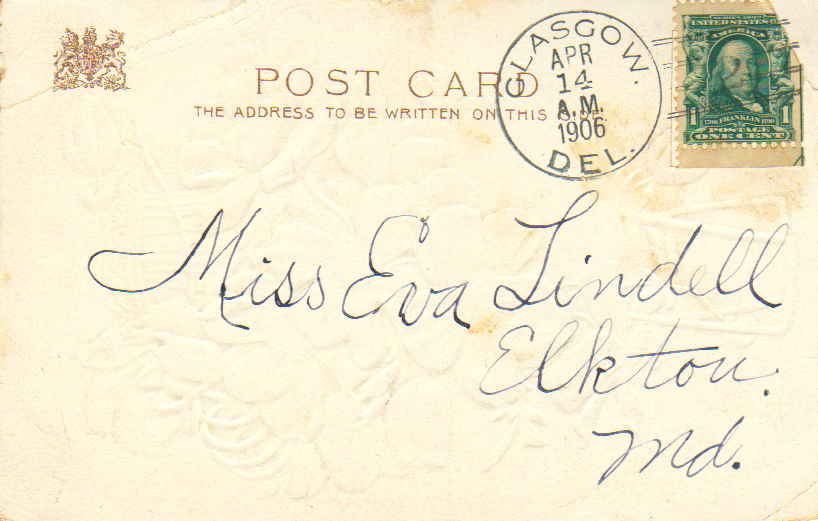 POST CARD
THE ADDRESS TO BE WRITTEN ON THIS
GLASGOW.
APR
14
A.M.
1906
DEL.
SERIES 1902
UNITED STATES OF
AMERICA
1 1
FRANKLIN
POSTAGE
ONE CENT
Miss Eva Lindell
Elkton.
Md.